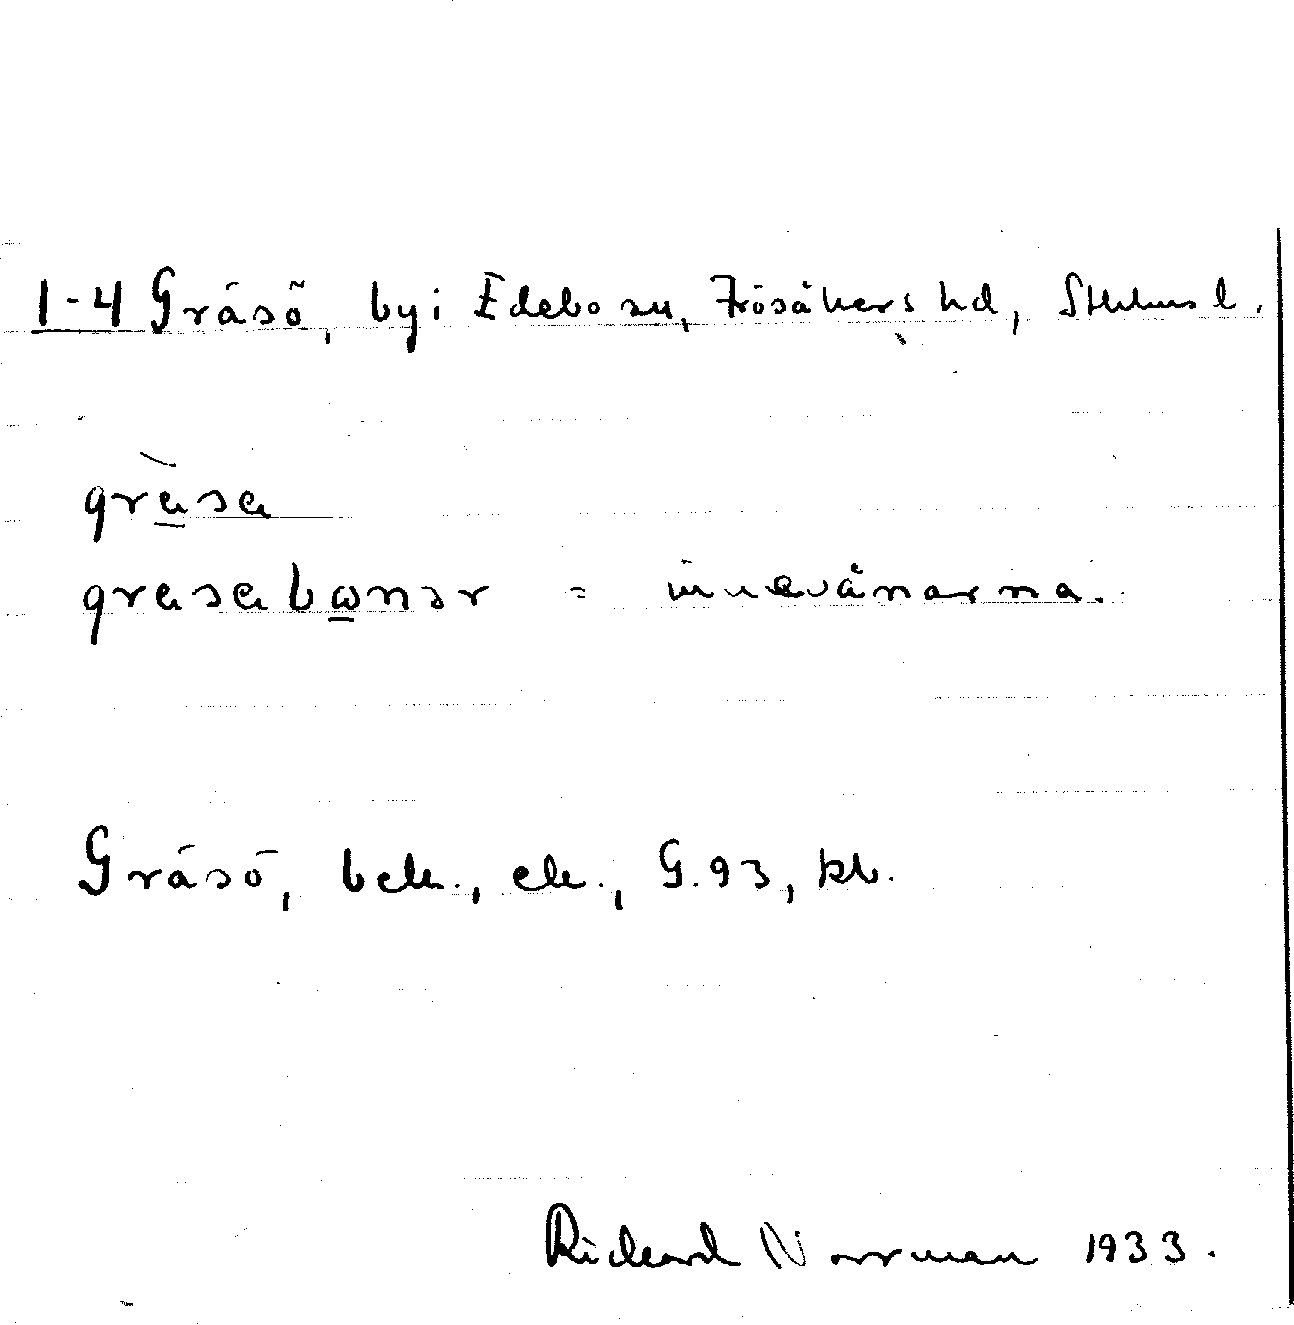 1-4 Gräsö, by i Edebo sn, Frösåkers hd, Sthlms l.
gräsa
gräsabωnər = innevånarna.
Gräsö, bek., ek., G.93, kb.
Richard Norrman 1933.